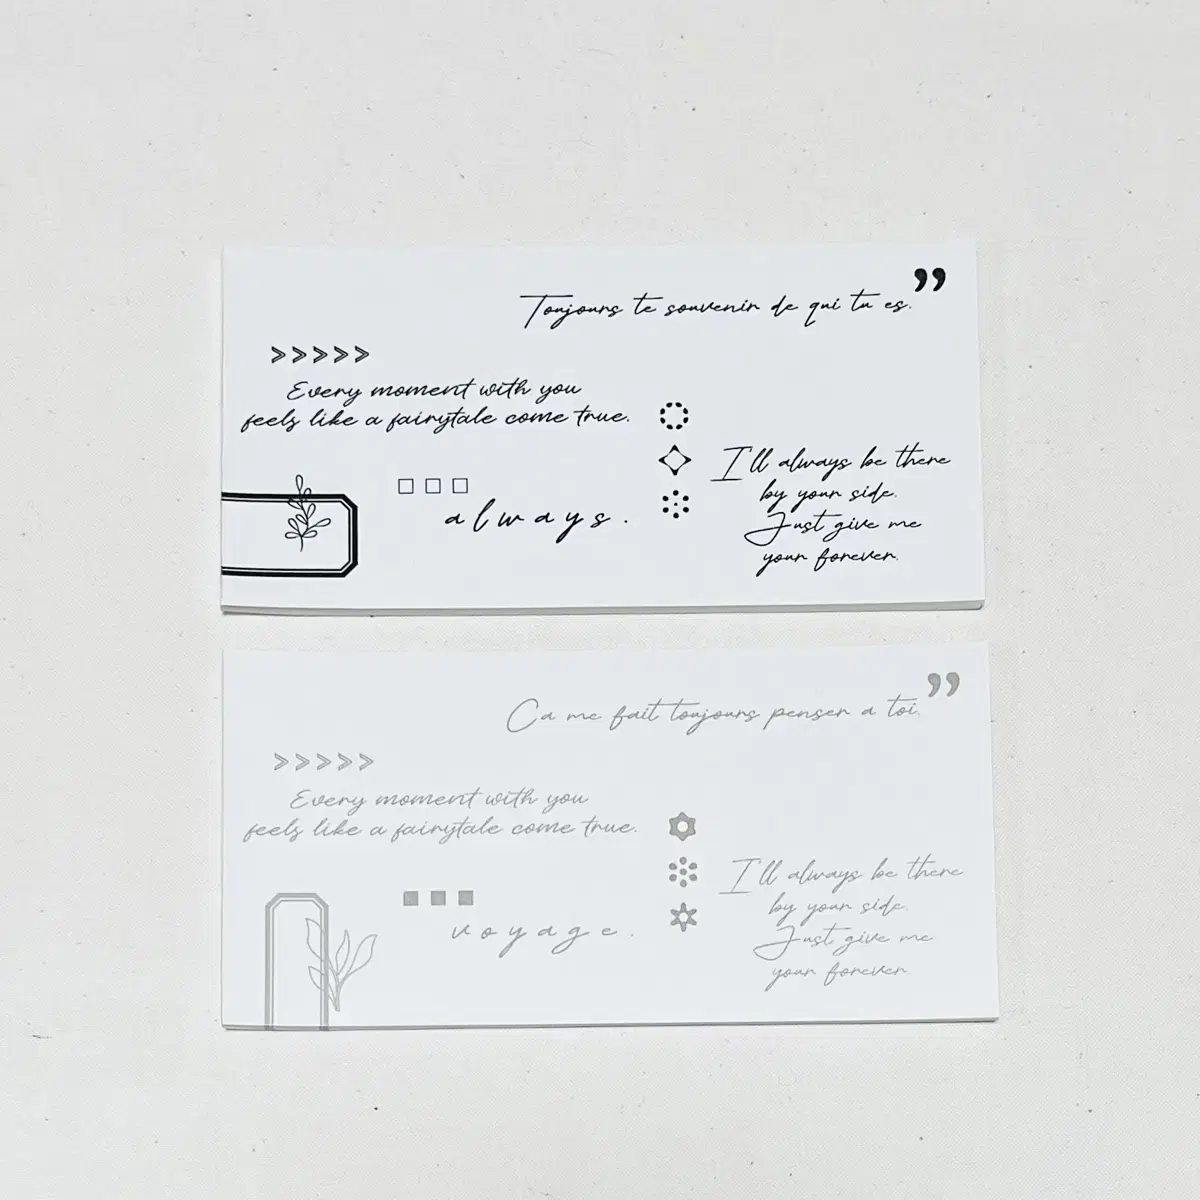 Toujours te souvenir de qui tu es.”
>>>>>
Every moment with you
feels like a fairytale come true.
always.
I'll always be there
by your side.
Just give me
your forever.
Ca me fait toujours penser a toi.”
>>>>>
Every moment with you
feels like a fairytale come true.
voyage.
I'll always be there
by your side.
Just give me
your forever.